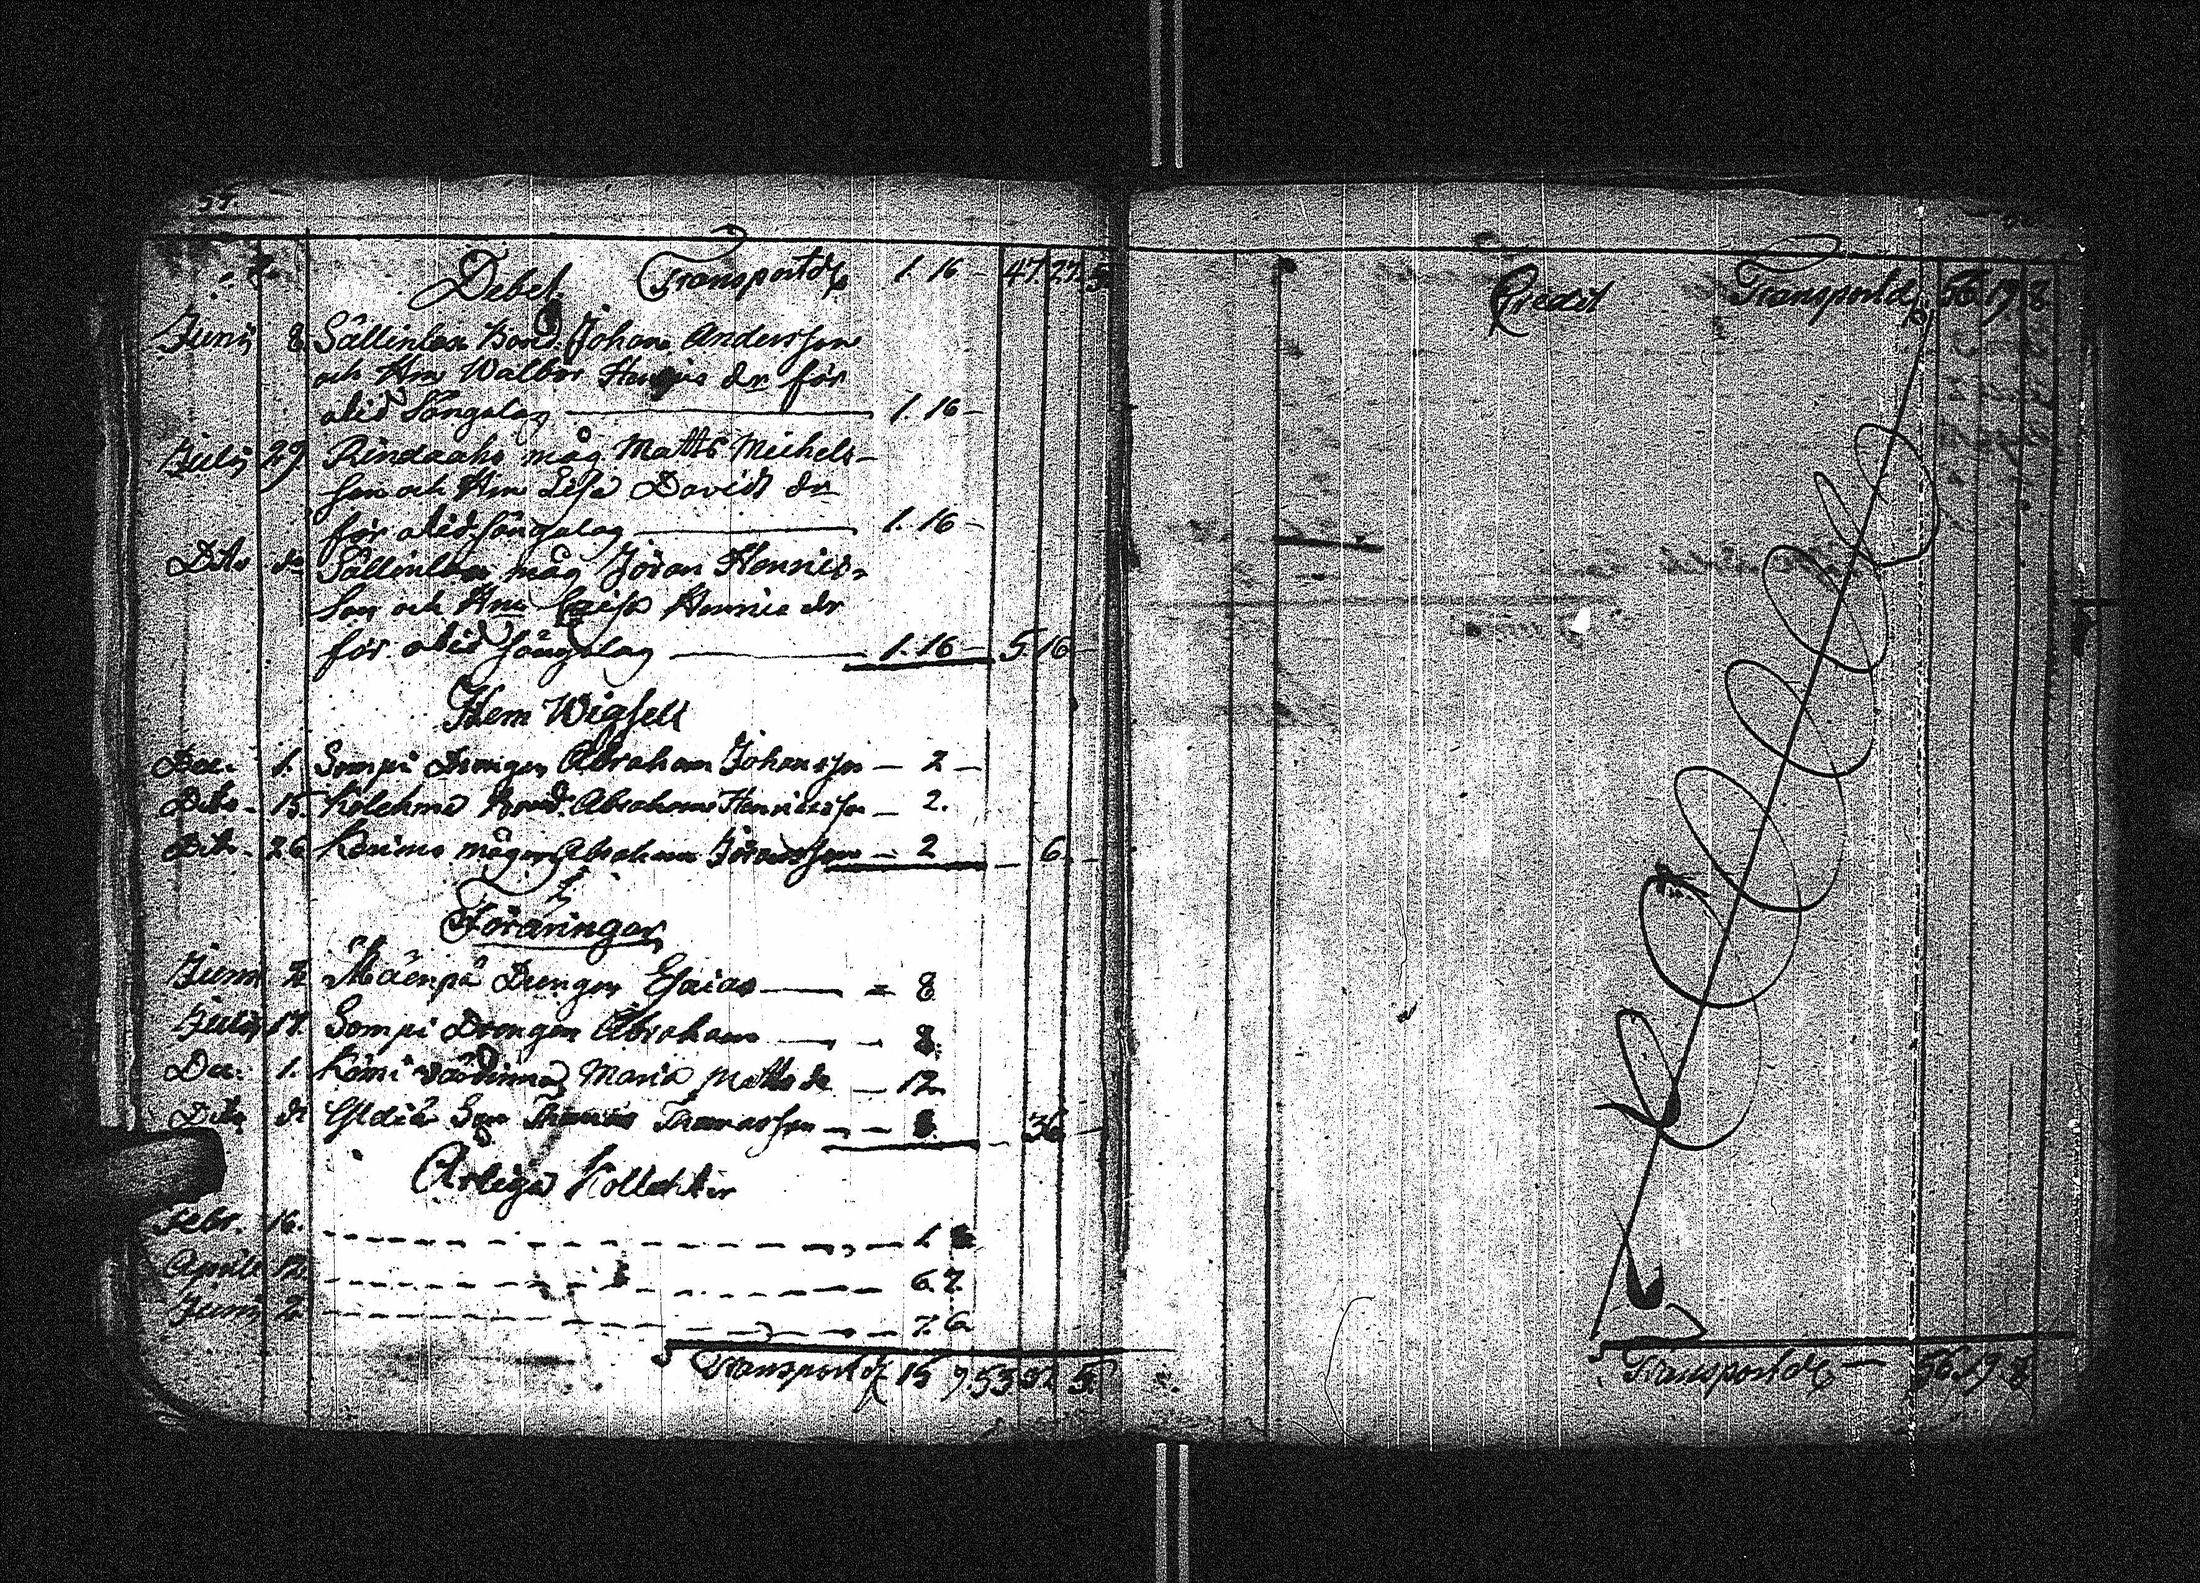 Debet Transportd 1. 16 - 47. 27. 5.
Junij 8 Sällinlax Bond. Johan Andersson
och Hu Walbor Henric dr för
otid Sängalag 1. 16 -
Julij 29. Rindaaho måg Matts Michels-
son och Hu Lisa David dr
för otid Sängalag 1. 16 -
Dito d Sällinlax måg Jöran Henrics-
son och Hu Caisa Henric dr
för otid Sängalag 1. 16 - 5 16 -
Hem Wigsell
Dec. 1. Sompi Drengen Abraham Johansson - 2 -
Dito - 15. Kolehma Bond. Abraham Henricsson - 2.
Dito - 26 Kaimo mågen Abraham Jöransson - 2 - 6. -
Föräringar
Junii 2 Mäenpä Drengen Esaias - 8
Julij 17. Sompi Drengen Abraham - 8.
Dec. 1. Kömi värdinnan Maria Matts dr - 12
Dito d Son Thomas Thomasson - 8. - 36 -
Årliga Kollekter
Febr. 16. 1. 8
Aprill 12. 6. 7.
Junii 2 7. 6
Transportd 15 9. 53 37. 5.
Credit Transportd 56. 19. 8.
Transportd - 56. 19. 8